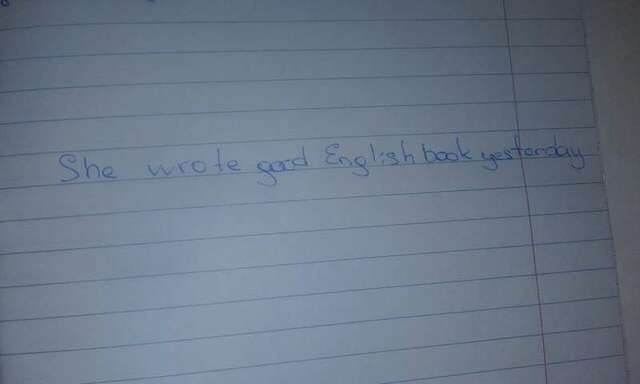 She wrote good English book yesterday